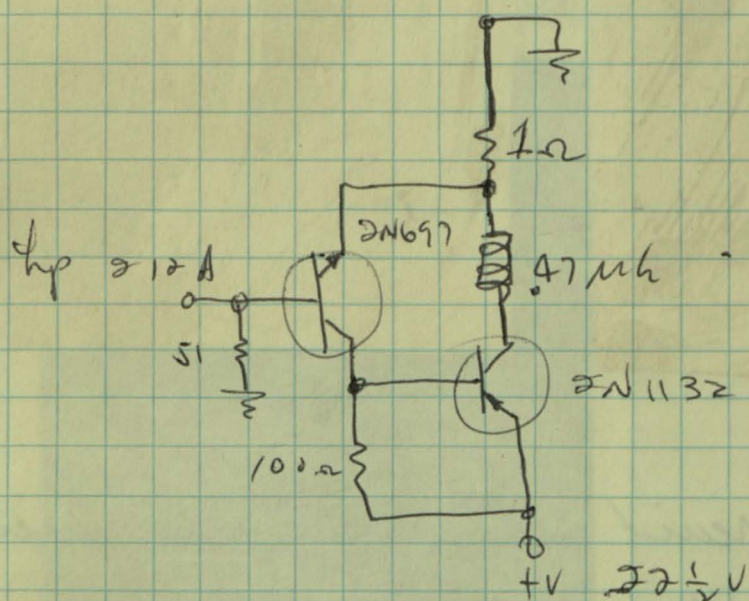 1Ω
2N697
hp 212A
.47 μh
51
2N1132
100Ω
+V 22 1/2 V